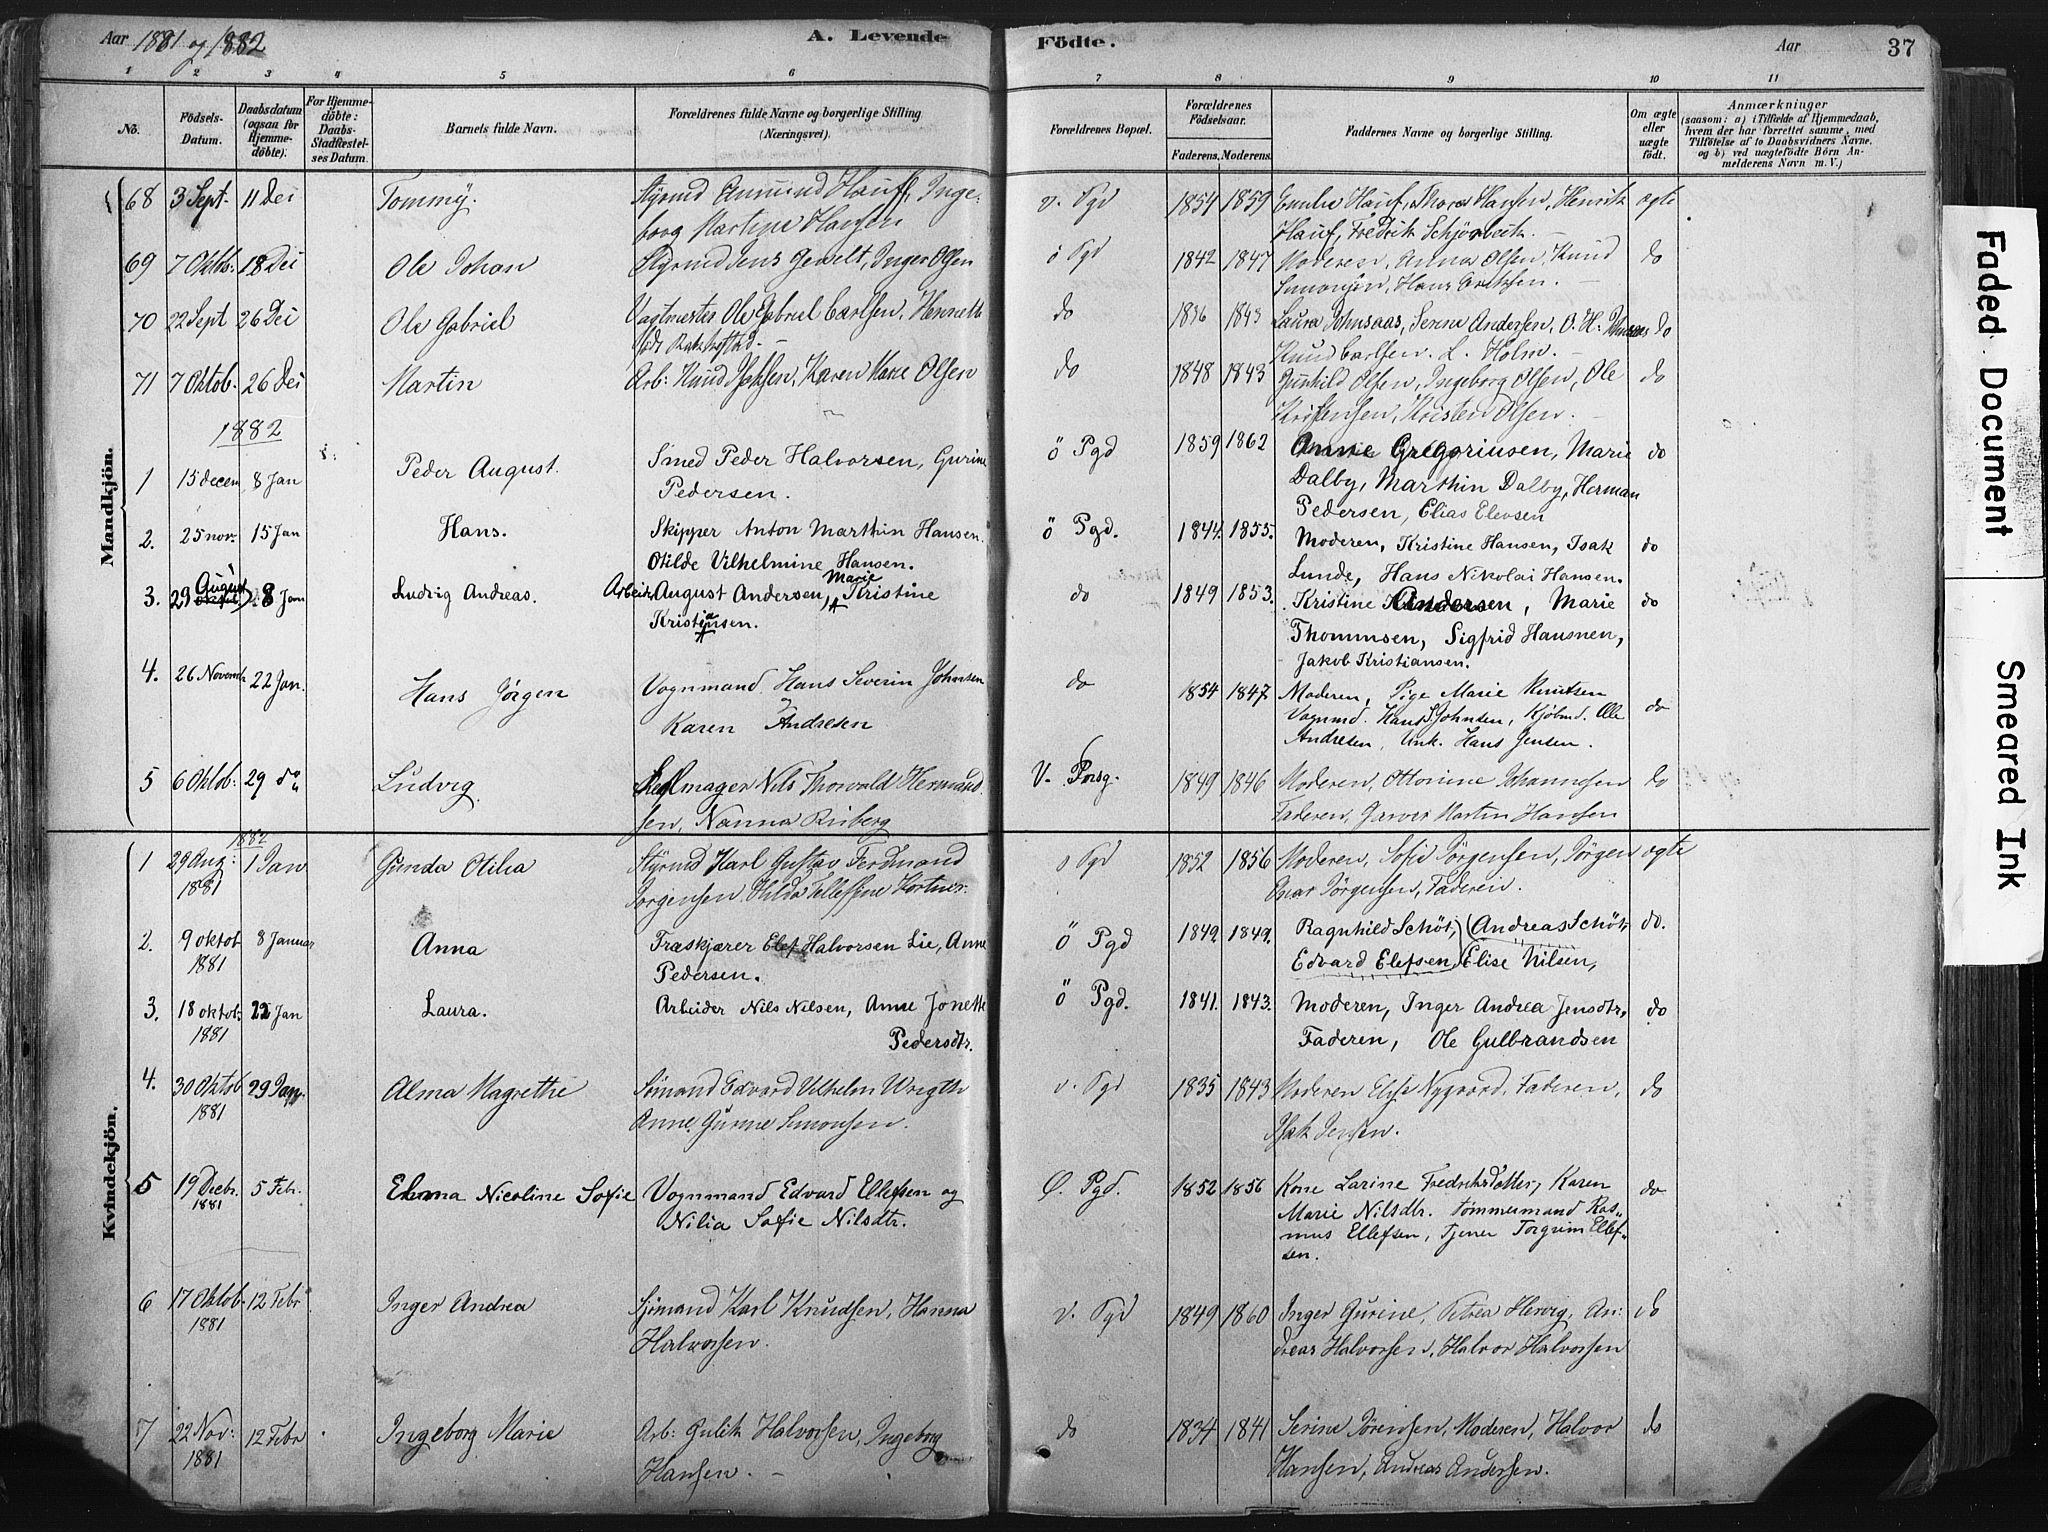 Aar 1881 og 1882
A. Levende
Födte.
Aar
37
1 2 3 4 5 6 7 8 9 10 11
No.
Födsels-Datum.
Daabsdatum (ogsaa for Hjemme-döbte).
For Hjemme-döbte: Daabs-Stadfæstel-ses Datum.
Barnets fulde Navn.
Forældrenes fulde Navne og borgerlige Stilling (Næringsvei).
Forældrenes Bopæl.
Forældrenes Födselsaar.
Faderens. Moderens.
Faddernes Navne og borgerlige Stilling.
Om ægte eller uægte födt.
Anmærkninger
(saasom: a) i Tilfælde af Hjemmedaab, hvem der har forrettet samme, med Tilföielse af to Daabsvidners Navne, og b) ved uægtefödte Börn Anmelderens Navn m. V.)
Mandkjön.
68 3 Sept. 11 Dec Tommy. Styrmd Amund Hauff, Inge-
borg Martine Hansen
v. Pgd 1854 1859 Emilie Hauf, Thora Hansen, Henrik
Hauf, Fredrik
ægte
69 7 Oktb. 18 Dec Ole Johan Styrmd Jens Gevelt, Inger Olsen
ö Pgd 1842 1847 Moderen, Anna Olsen, Knud
Simonsen, Hans
do
70 22 Sept 26 Dec Ole Gabriel Vagtmester Ole Gabriel Carlsen, Henriette
født
do 1836 1843 Laura Johnsaas, Serine Andersen, O. H. Johnsaas
Knud Carlsen. L. Holm.
do
71 7 Oktob. 26 Dec Martin Arb: Knud Karen Marie Olsen
do 1848 1843 Gunhild Olsen, Ingeborg Olsen, Ole
Kristensen, Kristen Olsen.
do
1882
1 15 decem 8 Jan Peder August. Smed Peder Halvorsen, Gurine
Pedersen.
ö Pgd 1859 1862 Anne Gregoriusen, Marie
Dalby, Marthin Dalby, Herman
Pedersen, Elias Elevsen
do
2. 25 nov. 15 Jan Hans. Skipper Anton Marthin Hansen.
Otilde Vilhelmine Hansen.
ö Pgd. 1844. 1855. Moderen, Kristine Hansen, Isak
Lunde, Hans Nikolai Hansen.
do
3. 29 August 8 Jan Ludvig Andreas. Arbeid. August Andersen, Marie Kristine
Kristiansen.
do 1849 1853. Kristine Andersen, Marie
Thommsen, Sigfrid Hansnen,
Jakob Kristiansen.
do
4. 26 Novemb 22 Jan. Hans Jörgen Vognmand Hans Severin Johnsen
Karen Andresen
do 1854 1847 Moderen, Pige Marie Knutsen
Vognmd. Hans S. Johnsen, Kjöbmd. Ole
Andresen, Unk. Hans Jensen.
do
5 6 Oktob. 29 do Ludvig. Seilmager Nils Thorvald Hermand
sen, Nanna Riiberg
V. Porsg. 1849 1846 Moderen, Ottomine Johannesen
Faderen, Garver Martin Hansen
do
Kvindekjön.
1882
1 29 Aug: 1881 1 Jan Gunda Otilia Styrmd Karl Gustav Ferdinand
Jörgensen, Hilda Tellefine
ö Pgd 1852 1856 Moderen, Sofie Jörgensen, Jörgen
Oscar Jörgensen, Faderen.
ægte
2. 9 oktob 1881 8 Januar Anna Træskjærer Elef Halvorsen Lie, Anne
Pedersen.
ö Pgd 1849. 1849. Ragnhild Schöt, (Andreas Schöt,
Edvard Elefsen, Elise Nilsen,
do.
3. 18 oktob. 1881 22 Jan Laura. Arbeider Nils Nilsen, Anne Jonette
Pedersdtr.
ö Pgd. 1841. 1843. Moderen, Inger Andrea Jensdtr,
Faderen, Ole Gulbrandsen
do
4. 30 Oktob 1881 29 Jan. Alma Magrethe Sömand Edvard Vilhelm Wrigth
Anne Gurine Simonsen.
v. Pgd 1835 1843 Moderen Elise Nygaard, Faderen,
Isak Jensen.
do
5 19 Decbr. 1881 5 Febr. Emma Nicoline Sofie Vognmand Edvard Ellefsen og
Nilia Sofie Nilsdtr.
Ø. Pgd. 1852 1856 Kone Larine Fredriksdatter, Karen
Marie Nilsdtr. Tömmermand Ras-
mus Ellefsen, Tjener Torgrim Ellef-
sen.
do
6 17 Oktob. 1881 12 Febr Inger Andrea Sjömand Karl Knudsen, Hanna
Halvorsen.
v. Pgd 1849 1860 Inger Gurine, Petrea Hervig, An-
dreas Halvorsen, Halvor Halvorsen
do
7 22 Nov: 1881 12 Febr Ingeborg Marie Arb: Gulik Halvorsen, Ingeborg
Hansen.
do 1834 1841 Serine Sörensen, Moderen, Halvor
Hansen, Andreas Andersen.
do
Faded Document
Smeared Ink